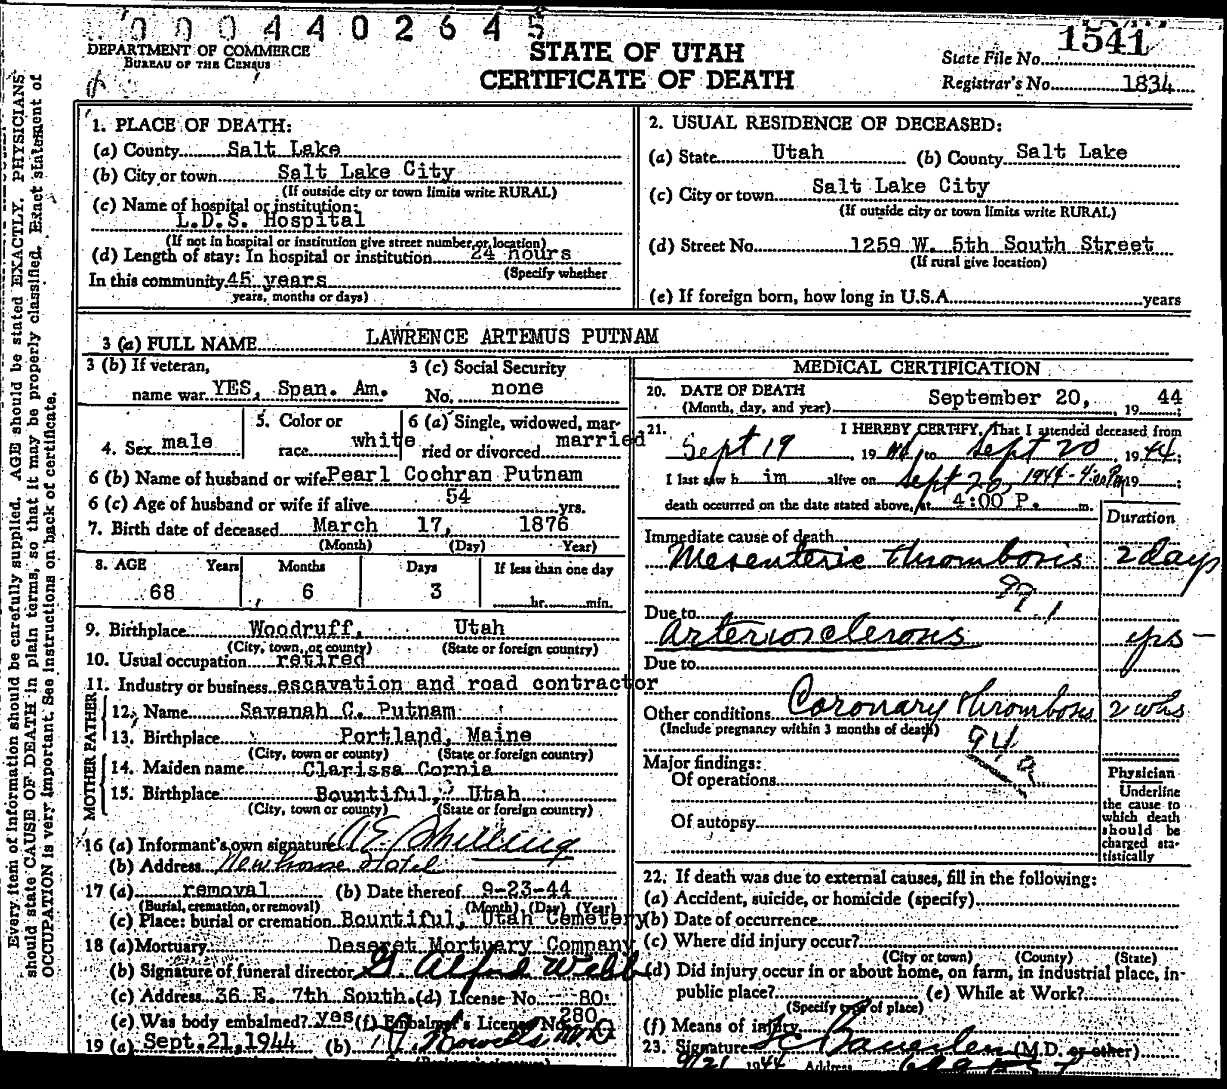 0004402645
DEPARTMENT OF COMMERCE
BUREAU OF THE CENSUS
STATE OF UTAH
CERTIFICATE OF DEATH
State File No. 1541
Registrar's No. 1834
Every item of information should be carefully supplied. AGE should be stated EXACTLY. PHYSICIANS
should state CAUSE OF DEATH in plain terms, so that it may be properly classified. Exact statement of
OCCUPATION is very important. See instructions on back of certificate.
1. PLACE OF DEATH:
(a) County Salt Lake
(b) City or town Salt Lake City
(If outside city or town limits write RURAL)
(c) Name of hospital or institution:
L.D.S. Hospital
(If not in hospital or institution give street number or location)
(d) Length of stay: In hospital or institution 24 hours
(Specify whether
In this community 45 years
years, months or days)
2. USUAL RESIDENCE OF DECEASED:
(a) State Utah (b) County Salt Lake
(c) City or town Salt Lake City
(If outside city or town limits write RURAL)
(d) Street No. 1259 W. 5th South Street
(If rural give location)
(e) If foreign born, how long in U.S.A. years
3 (a) FULL NAME LAWRENCE ARTEMUS PUTNAM
3 (b) If veteran, name war YES, Span. Am.
3 (c) Social Security No. none
4. Sex male
5. Color or race white
6 (a) Single, widowed, married or divorced married
6 (b) Name of husband or wife Pearl Cochran Putnam
6 (c) Age of husband or wife if alive 54 yrs.
7. Birth date of deceased March 17, 1876
(Month) (Day) Year)
8. AGE Years Months Days If less than one day
68 6 3 hr. min.
9. Birthplace Woodruff, Utah
(City, town, or county) (State or foreign country)
10. Usual occupation retired
11. Industry or business escavation and road contractor
FATHER
12. Name Savenah C. Putnam
13. Birthplace Portland, Maine
(City, town or county) (State or foreign country)
MOTHER
14. Maiden name Clarissa Cornia
15. Birthplace Bountiful, Utah
(City, town or county) (State or foreign country)
16 (a) Informant's own signature
(b) Address Newhouse Hotel
17 (a) removal (b) Date thereof 9-23-44
(Burial, cremation, or removal) (Month) (Day) (Year)
(c) Place: burial or cremation Bountiful, Utah Cemetery
18 (a) Mortuary Deseret Mortuary Company
(b) Signature of funeral director G Alfred Webb
(c) Address 36 E. 7th South (d) License No. 80
(e) Was body embalmed? yes (f) Embalmer's License No. 280
19 (a) Sept. 21, 1944 (b)
MEDICAL CERTIFICATION
20. DATE OF DEATH
(Month, day, and year) September 20, 1944;
21. I HEREBY CERTIFY, That I attended deceased from
Sept 19, 1944, to Sept 20, 1944;
I last saw him alive on Sept 20, 1944 - 4:00 Pm 19;
death occurred on the date stated above, at 4:00 P. m.
Duration
Immediate cause of death
Mesenteric thrombosis 2 days
99.1
Due to
Arteriosclerosis yrs -
Due to
Other conditions Coronary thrombosis 2 wks
(Include pregnancy within 3 months of death)
94 a
Major findings:
Of operations
Of autopsy
Physician
Underline
the cause to
which death
should be
charged sta-
tistically
22. If death was due to external causes, fill in the following:
(a) Accident, suicide, or homicide (specify)
(b) Date of occurrence
(c) Where did injury occur?
(City or town) (County) (State)
(d) Did injury occur in or about home, on farm, in industrial place, in-
public place? (e) While at Work?
(Specify type of place)
(f) Means of injury
23. Signature (M.D. or other)
9/21 1944 Address